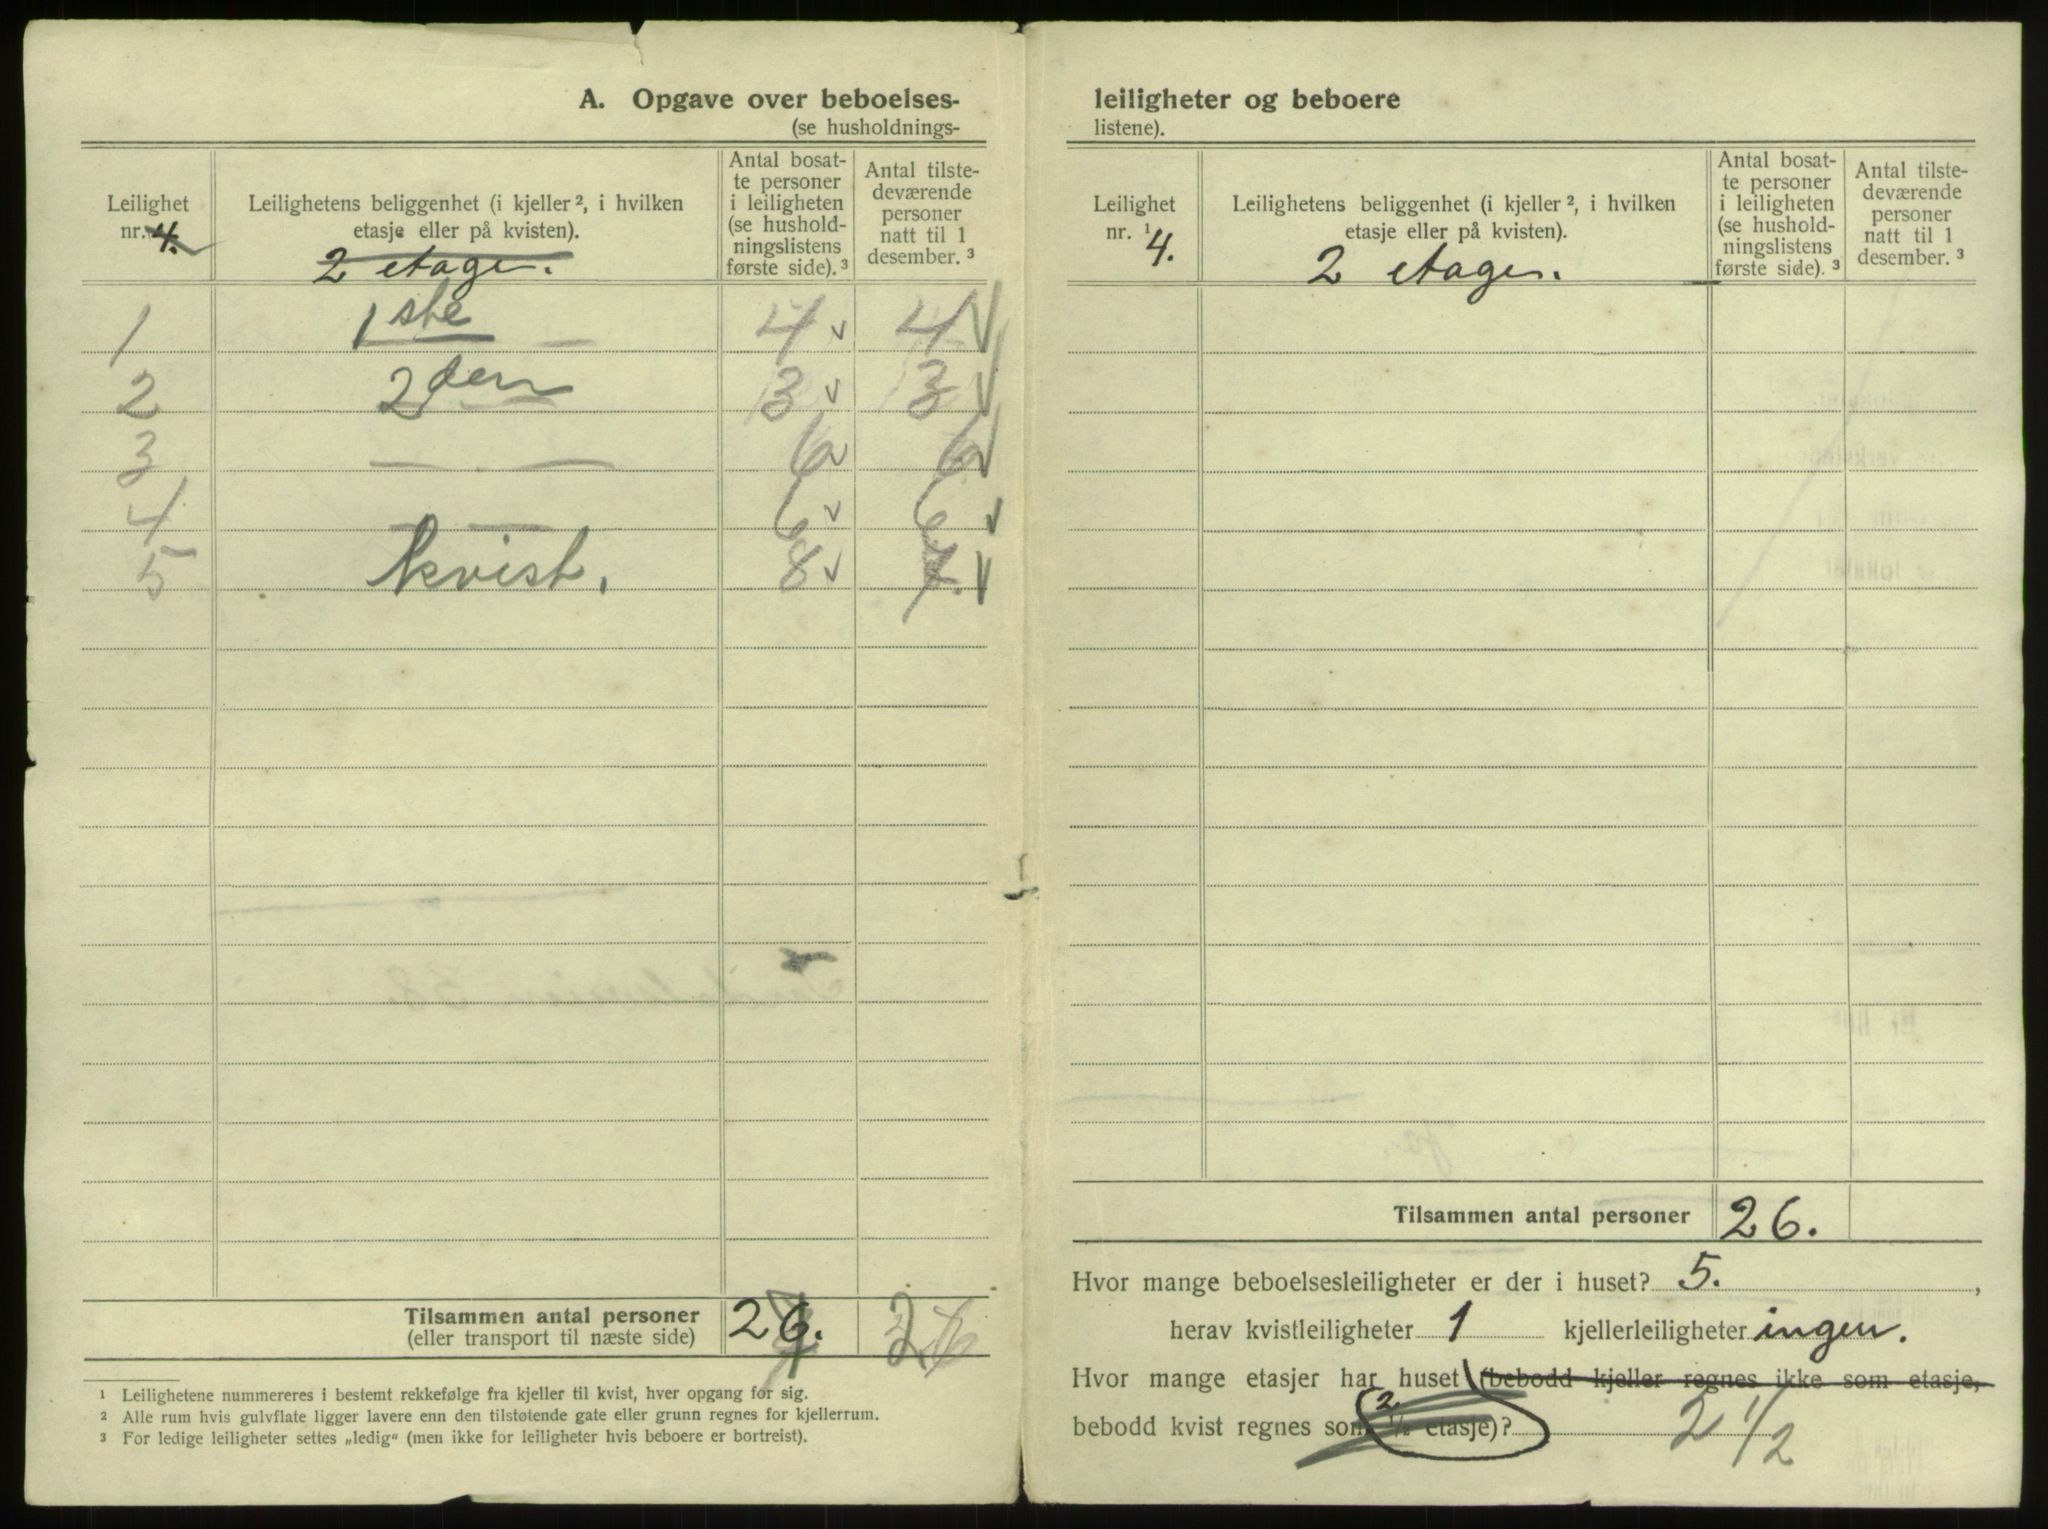 A. Opgave over beboelses-
(se husholdnings-
Leilighet
nr. 4.
Leilighetens beliggenhet (i kjeller ², i hvilken
etasje eller på kvisten).
2 etager.
Antal bosat-
te personer
i leiligheten
(se hushold-
ningslistens
første side). ³
Antal tilste-
deværende
personer
natt til 1
desember. ³
1 1ste 4 v 4 v
2 2den 3 v 3 v
3 — — 6 v 6 v
4 — — 6 v 6 v
5 kvist. 8 v 7. v
Tilsammen antal personer 26. 26
(eller transport til næste side)
¹ Leilighetene nummereres i bestemt rekkefølge fra kjeller til kvist, hver opgang for sig.
² Alle rum hvis gulvflate ligger lavere enn den tilstøtende gate eller grunn regnes for kjellerrum.
³ For ledige leiligheter settes „ledig“ (men ikke for leiligheter hvis beboere er bortreist).
leiligheter og beboere
listene).
Leilighet
nr. ¹ 4.
Leilighetens beliggenhet (i kjeller ², i hvilken
etasje eller på kvisten).
2 etager.
Antal bosat-
te personer
i leiligheten
(se hushold-
ningslistens
første side). ³
Antal tilste-
deværende
personer
natt til 1
desember. ³
Tilsammen antal personer 26.
Hvor mange beboelsesleiligheter er der i huset? 5. ,
herav kvistleiligheter 1 kjellerleiligheter ingen.
Hvor mange etasjer har huset (bebodd kjeller regnes ikke som etasje,
bebodd kvist regnes som ½ etasje)? 2 2 1/2